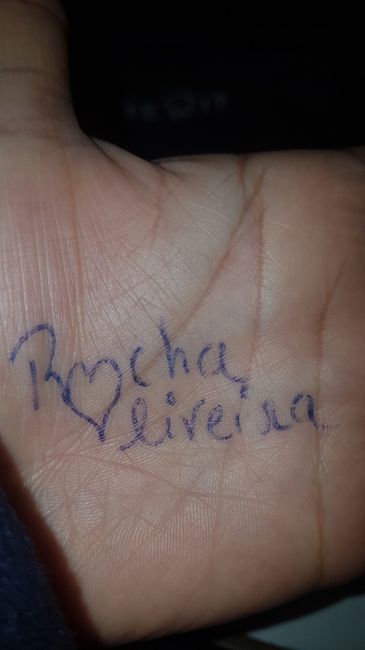 R♡cha
♡liveira